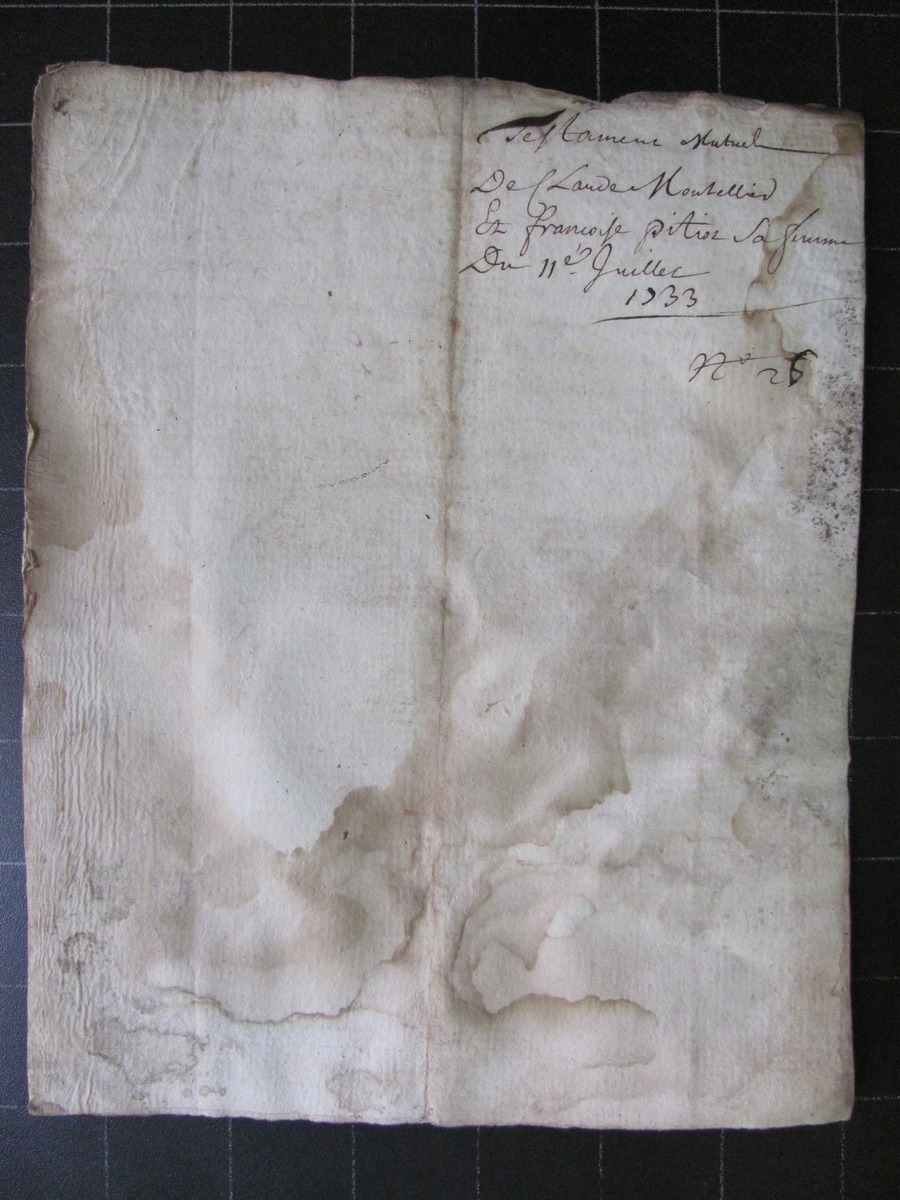 Testament Mutuel
De Claude Montellier
Et francoise pitiot Sa femme
Du 11e. Juillet
1733
No 26